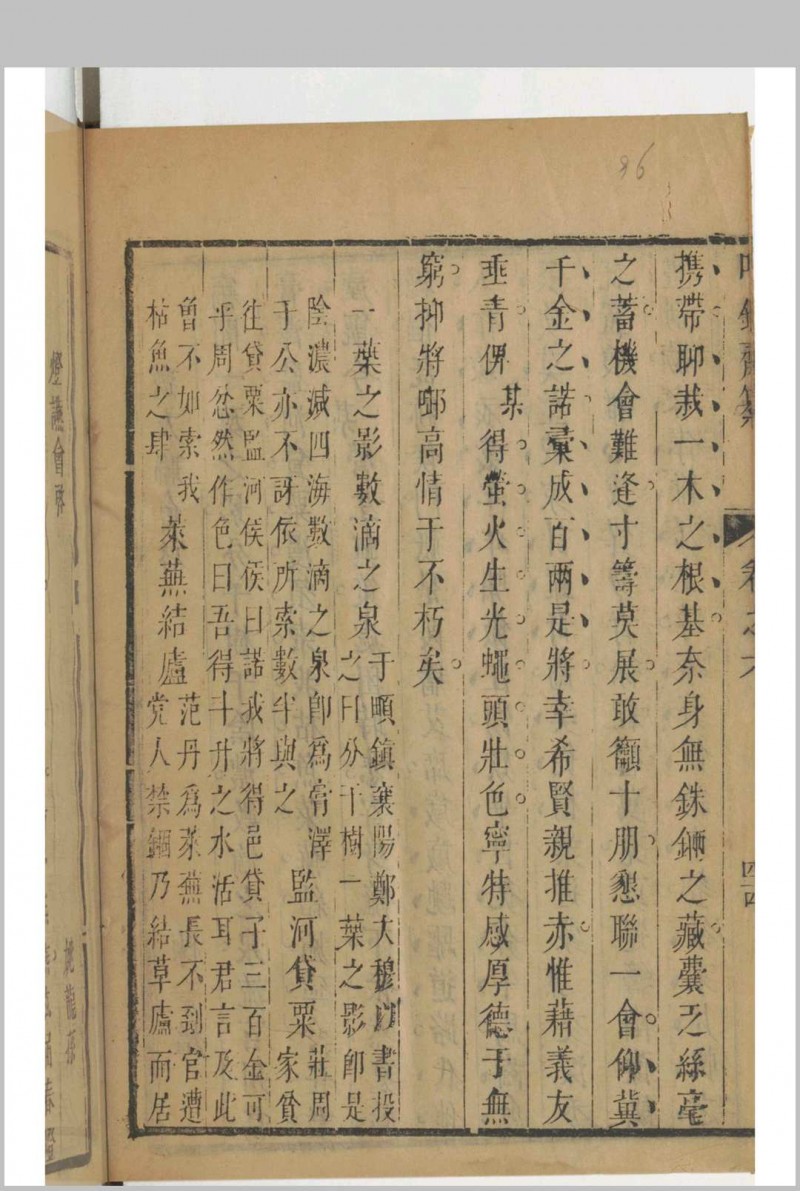 86
卷之六
四
携帶聊栽一木之根基奈身無銖錙之藏囊乏絲毫
之蓄機會難逢寸籌莫展敢籲十朋懇聯一會仰冀
千金之諾彙成百兩是將幸希賢親推赤惟藉義友
垂青俾某得螢火生光蠅頭壯色寧特感厚德于無
窮抑將啣高情于不朽矣
一葉之影數滴之泉
于頔鎮襄陽鄭大穆以書投
之曰分千樹一葉之影即是
陰濃減四海數滴之泉即爲膏澤
于公亦不訝依所索數半與之
監河貸粟
莊周
家貧
往貸粟監河侯侯曰諾我將得邑貸子三百金可
乎周忿然作色曰吾得斗升之水活耳君言及此
曾不如索我
枯魚之肆
萊蕪結廬
范丹爲萊蕪長不到官遭
党人禁錮乃結草廬而居